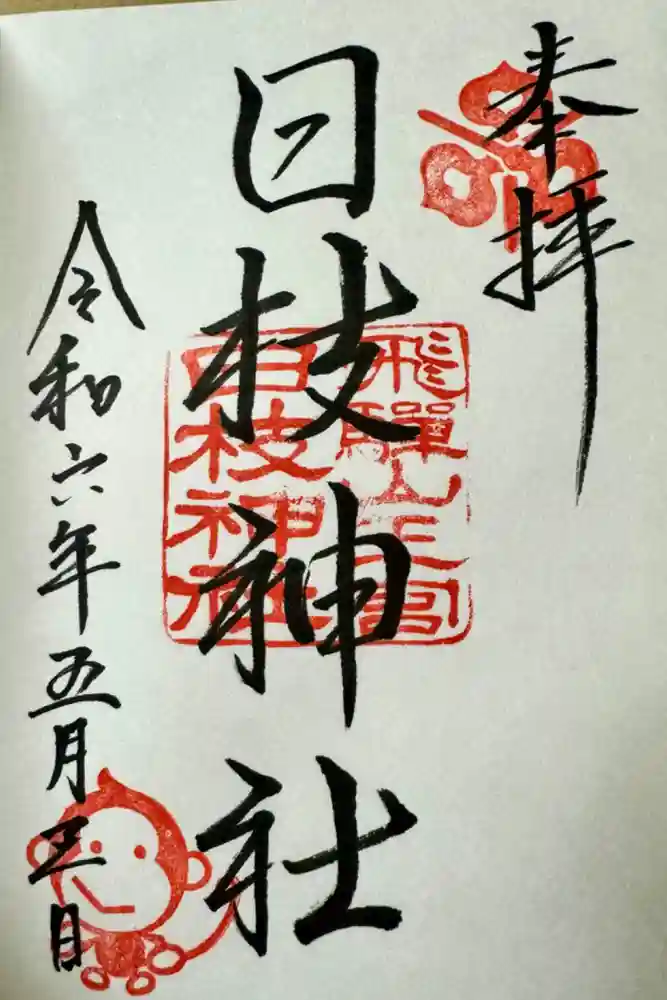 奉拝
日枝神社
飛騨山王宮
日枝神社
令和六年五月三日